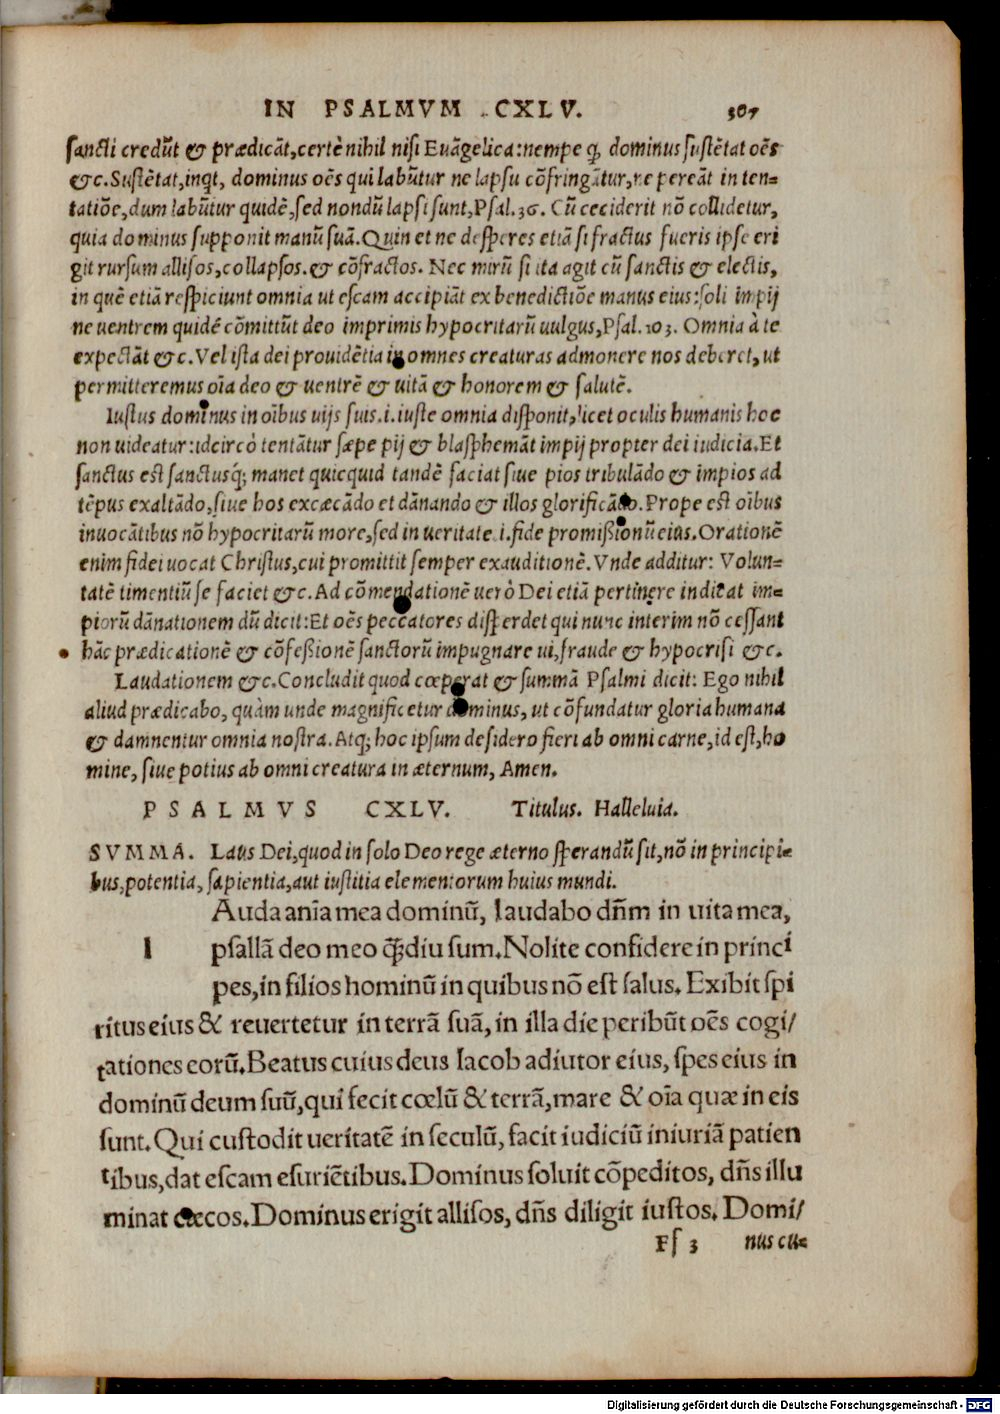 IN PSALMVM CXLV. 307
sancti credũt & prædicãt, certè nihil nisi Euãgelica: nempe ꝙ dominus sustẽtat oẽs
&c. Sustẽtat, inqt, dominus oẽs qui labũtur ne lapsu cõfringãtur, ne pereãt in ten=
tatiõe, dum labũtur quidẽ, sed nondũ lapsi sunt, Psal. 36. Cũ ceciderit nõ collidetur,
quia dominus supponit manũ suã. Quin et ne desperes etiã si fractus fueris ipse eri
git rursum allisos, collapsos. & cõfractos. Nec mirũ si ita agit cũ sanctis & electis,
in quẽ etiã respiciunt omnia ut escam accipiãt ex benedictiõe manus eius: soli impij
ne uentrem quidẽ cõmittũt deo imprimis hypocritarũ uulgus, Psal. 103. Omnia à te
expectãt &c. Vel ista dei prouidẽtia in omnes creaturas admonere nos deberet, ut
permitteremus oĩa deo & uentrẽ & uitã & honorem & salutẽ.
Iustus dominus in oĩbus uijs suis. i. iuste omnia disponit, licet oculis humanis hoc
non uideatur: idcirco tentãtur sæpe pij & blasphemãt impij propter dei iudicia. Et
sanctus est sanctusq; manet quicquid tandẽ faciat siue pios tribulãdo & impios ad
tẽpus exaltãdo, siue hos excæcãdo et dãnando & illos glorificãdo. Prope est oĩbus
inuocãtibus nõ hypocritarũ more, sed in ueritate. i. fide promißionũ eius. Orationẽ
enim fidei uocat Christus, cui promittit semper exauditionẽ. Vnde additur: Volun=
tatẽ timentiũ se faciet &c. Ad cõmendationẽ uerò Dei etiã pertinere indicat im=
piorũ dãnationem dũ dicit: Et oẽs peccatores disperdet qui nunc interim nõ cessant
hãc prædicationẽ & cõfeßionẽ sanctorũ impugnare ui, fraude & hypocrisi &c.
Laudationem &c. Concludit quod cœperat & summã Psalmi dicit: Ego nihil
aliud prædicabo, quàm unde magnificetur dominus, ut cõfundatur gloria humana
& damnentur omnia nostra. Atq; hoc ipsum desidero fieri ab omni carne, id est, ho
mine, siue potius ab omni creatura in æternum, Amen.
PSALMVS CXLV. Titulus. Halleluia.
SVMMA. Laus Dei, quod in solo Deo rege æterno sperandũ sit, nõ in principi=
bus, potentia, sapientia, aut iustitia elementorum huius mundi.
l Auda anĩa mea dominũ, laudabo dñm in uita mea,
psallã deo meo q̃diu sum. Nolite confidere in princi
pes, in filios hominũ in quibus nõ est salus. Exibit spi
ritus eius & reuertetur in terrã suã, in illa die peribũt oẽs cogi/
tationes eorũ. Beatus cuius deus Iacob adiutor eius, spes eius in
dominũ deum suũ, qui fecit cœlũ & terrã, mare & oĩa quæ in eis
sunt. Qui custodit ueritatẽ in seculũ, facit iudiciũ iniuriã patien
tibus, dat escam esuriẽtibus. Dominus soluit cõpeditos, dñs illu
minat cæcos. Dominus erigit allisos, dñs diligit iustos. Domi/
Ff 3 nus cu=
Digitalisierung gefördert durch die Deutsche Forschungsgemeinschaft - DFG